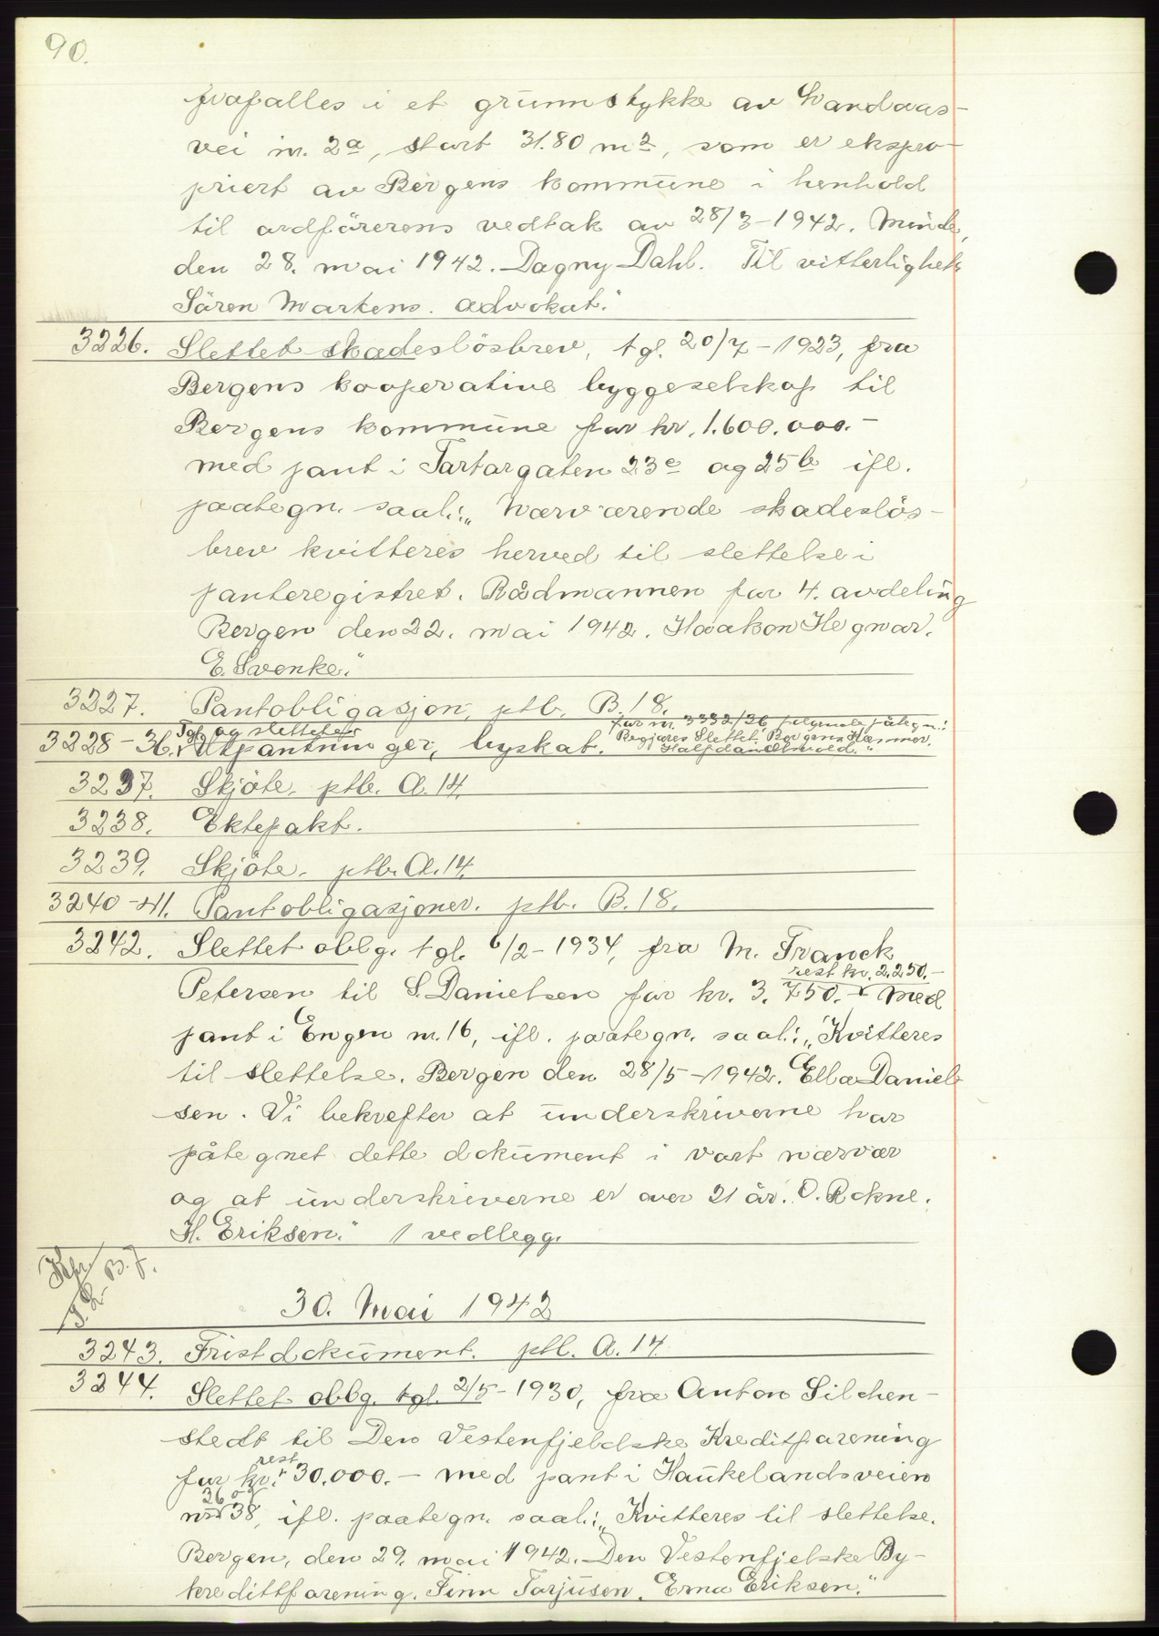 90.
frafalles i et grunnstykke av Landaas-
vei nr. 2a, stort 31.80 m2, som er ekspro-
priert av Bergens kommune i henhold
til ordførerens vedtak av 28/3-1942. Minde,
den 28. mai 1942. Dagny Dahl. Til vitterlighet:
Sören Martens. advokat."
3226. Slettet skadeslösbrev, tgl. 20/7-1923, fra
Bergens kooperative byggeselskap til
Bergens kommune for kr. 1.600.000.-
med pant i Tartargaten 23c og 25b ifl.
paategn. saal.: „Nærværende skadeslös-
brev kvitteres herved til slettelse i
panteregistret. Rådmannen for 4. avdeling
Bergen den 22. mai 1942. Haakon Hegnar.
E. Svenke."
3227. Pantobligasjon, ptb. B. 18.
Tgl. og slettet
for nr. 3232/36 følgende påtegn.:
3228-36. Utpantninger, byskat.
3237. Skjöte. ptb. A. 14.
3238. Ektepakt.
3239. Skjöte. ptb. A. 14.
3240-41. Pantobligasjoner. ptb. B. 18.
3242. Slettet oblg. tgl. 6/2-1934, fra M. Franck
rest kr. 2.250.-
Petersen til S. Danielsen for kr. 3.750.- + med
pant i Engen nr. 16, ifl. paategn. saal.: „Kvitteres
til slettelse. Bergen den 28/5-1942. Ella Daniel-
sen. Vi bekrefter at underskriverne har
påtegnet dette dokument i vort nærvær
og at underskriverne er over 21 år. O. Rokne.
H. Eriksen." 1 vedlegg.
B. J.
30. Mai 1942
3243. Fristdokument. ptb. A. 14.
3244. Slettet oblg. tgl. 2/5-1930, fra Anton Silchen-
stedt til Den Vestenfjeldske Kreditforening
rest
for kr. + 30.000.- med pant i Haukelandsveien
36 og
nr. 38, ifl. paategn. saal.: „Kvitteres til slettelse.
Bergen, den 29. mai 1942. Den Vestenfjelske By-
kredittforening. Finn Torjusen. Erna Eriksen."